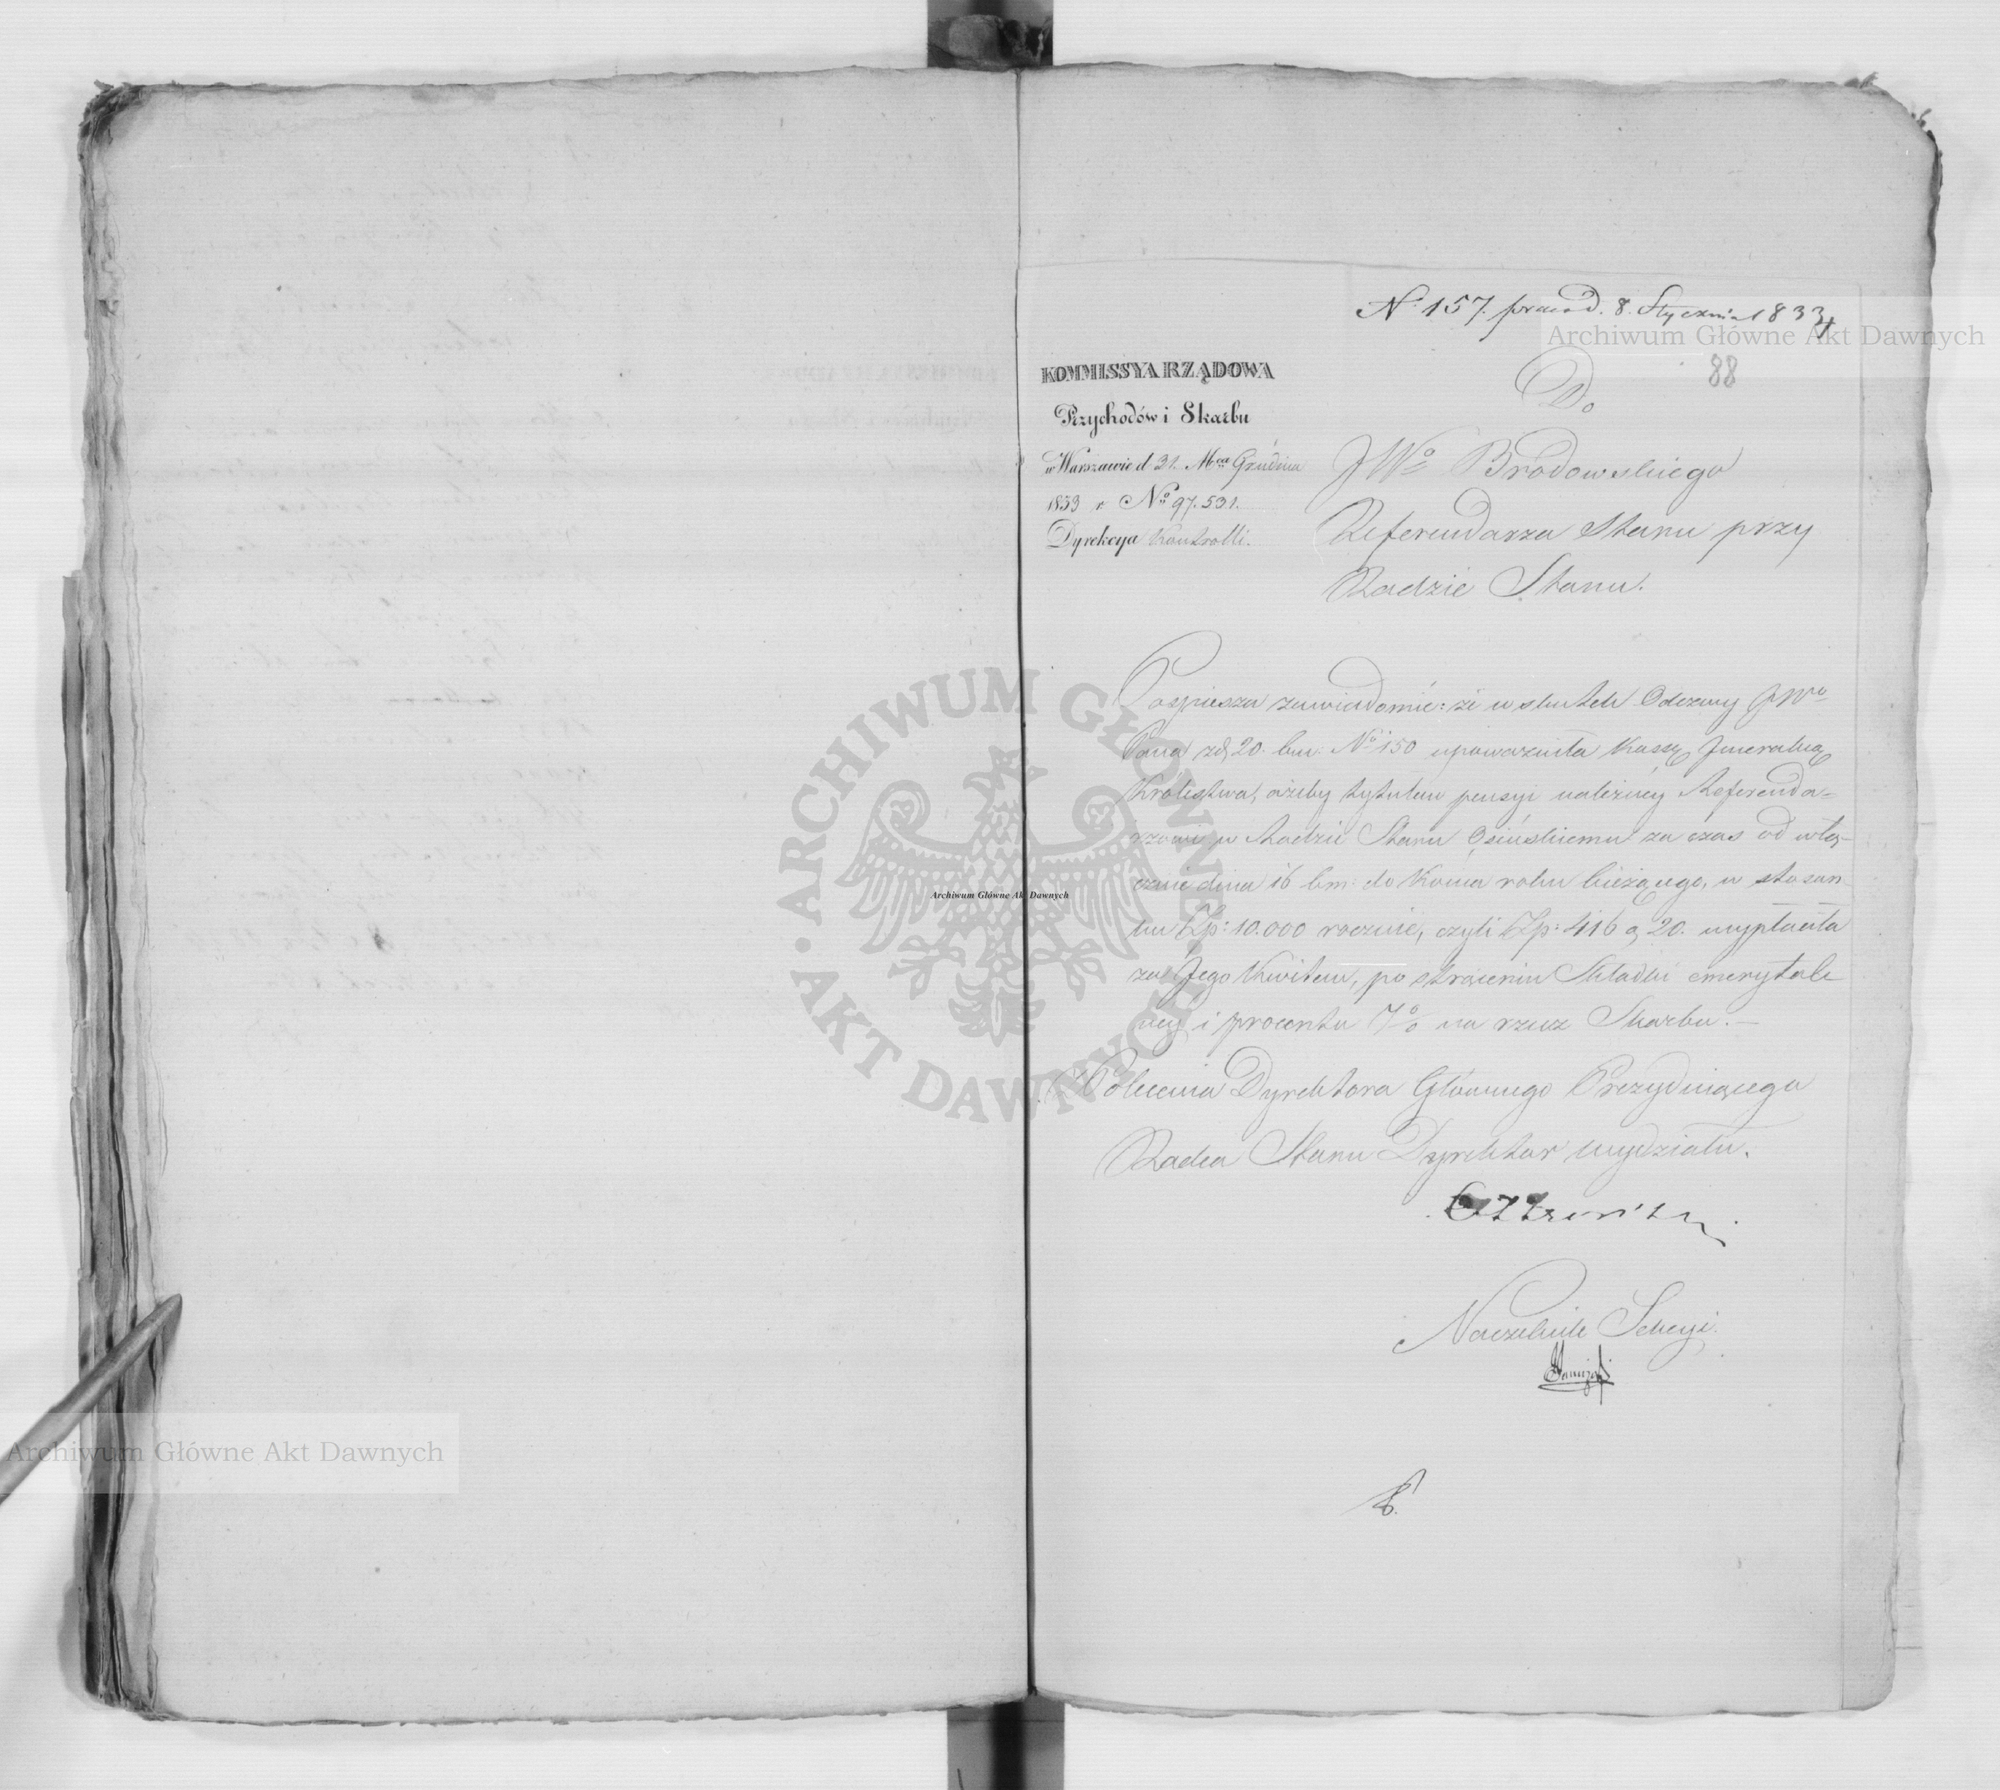 N. 157. prae d. 8. Stycznia 1834
Archiwum Główne Akt Dawnych
88
KOMMISSYA RZĄDOWA
Przychodów i Skarbu
w Warszawie d 31. Mca Grudnia
1833 r. No 97.531.
Dyrekcya Kontrolli.
Do
JWo Brodowskiego
Referendarza Stanu przy
Radzie Stanu.
Pospiesza zawiadomić: że w skutek Odezwy JWo
Pana z d, 20. bm. No 150 upoważniła Kassę Jneralną
Królestwa, ażeby tytułem pensyi należnéy Referenda-
rzowi w Radzie Stanu Osińskiemu za czas od włą-
cznie dnia 16 bm: do Końca roku bieżącego, w stosun-
ku Złp: 10.000 rocznie, czyli Złp: 416 g, 20. wypłaciła
za Jego Kwitem, po strąceniu Składki emerytal-
néy i procentu 7% na rzecz Skarbu.—
z Polecenia Dyrektora Głównego Prezyduiącego
Radca Stanu Dyrektor wydziału.
Naczelnik Sekcyi.
ARCHIWUM GŁÓWNE
AKT DAWNYCH
Archiwum Główne Akt Dawnych
Archiwum Główne Akt Dawnych